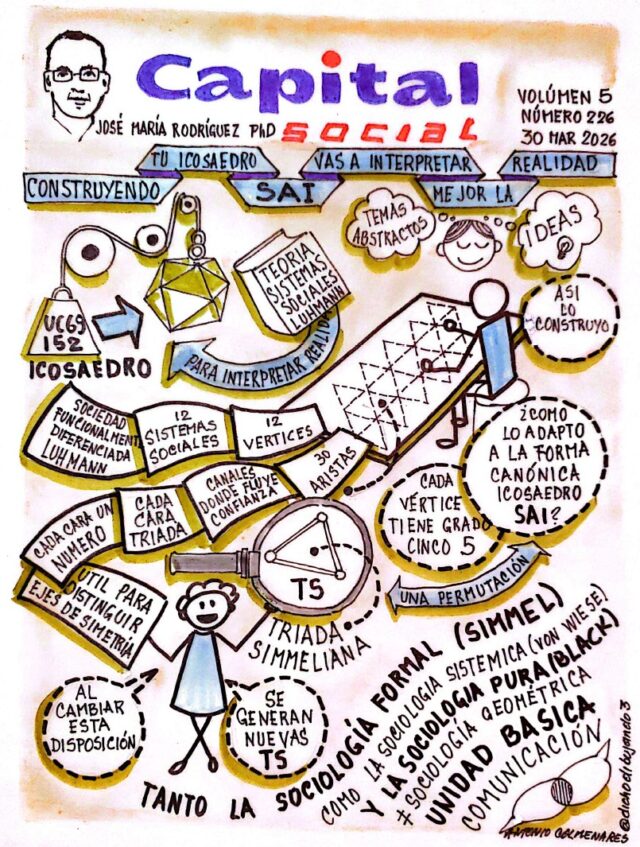 Capital
social
JOSÉ MARÍA RODRÍGUEZ PhD
VOLÚMEN 5
NÚMERO 226
30 MAR 2026
CONSTRUYENDO
TU ICOSAEDRO
SAI
VAS A INTERPRETAR
MEJOR LA
REALIDAD
TEMAS
ABSTRACTOS
IDEAS
TEORIA
SISTEMAS
SOCIALES
LUHMANN
UC69
152
ICOSAEDRO
PARA INTERPRETAR REALIDAD
ASI
LO
CONSTRUYO
SOCIEDAD
FUNCIONALMENTE
DIFERENCIADA
LUHMANN
12
SISTEMAS
SOCIALES
12
VERTICES
30
ARISTAS
CANALES
DONDE FLUYE
CONFIANZA
CADA
CARA
TRIADA
CADA CARA UN
NUMERO
UTIL PARA
DISTINGUIR
EJES DE SIMETRIA
¿COMO
LO ADAPTO
A LA FORMA
CANÓNICA
ICOSAEDRO
SAI?
CADA
VÉRTICE
TIENE GRADO
CINCO 5
UNA PERMUTACIÓN
TS
TRIADA
SIMMELIANA
AL
CAMBIAR
ESTA
DISPOSICIÓN
SE
GENERAN
NUEVAS
TS
TANTO LA SOCIOLOGÍA FORMAL (SIMMEL)
COMO LA SOCIOLOGIA SISTEMICA (VON WIESE)
Y LA SOCIOLOGIA PURA (BLACK)
≠ SOCIOLOGÍA GEOMÉTRICA
UNIDAD BASICA
COMUNICACIÓN
ANTONIO COLMENARES
@dichoydibujando3